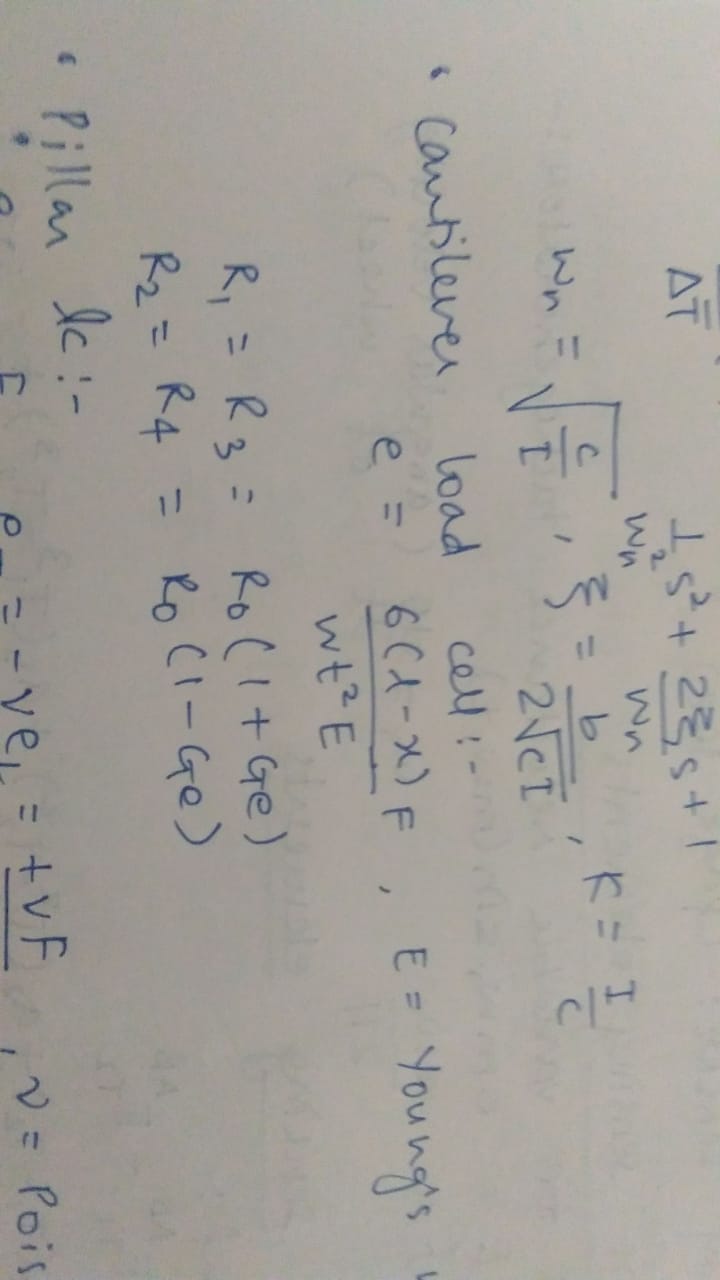 ΔT̅
1/ωn² s² + 2ξ/ωn s + 1
ωn = √(c/I) , ξ = b/(2√(cI)) , K = I/c
• Cantilever load cell :-
e = 6(l-x)/(wt²E) F , E = Young's
R₁ = R₃ = R₀(1+Ge)
R₂ = R₄ = R₀(1-Ge)
• Pillar lc :-
= -νeL = +νF , ν = Pois